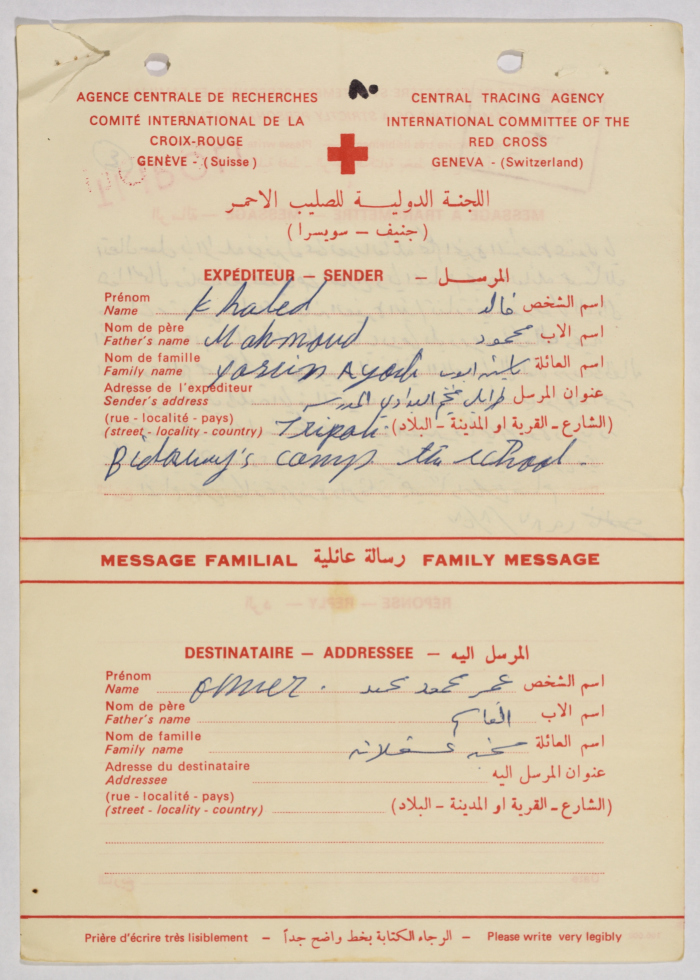 ٨٠
AGENCE CENTRALE DE RECHERCHES
COMITÉ INTERNATIONAL DE LA
CROIX-ROUGE
GENÈVE - (Suisse)
CENTRAL TRACING AGENCY
INTERNATIONAL COMMITTEE OF THE
RED CROSS
GENEVA - (Switzerland)
اللجنة الدولية للصليب الاحمر
(جنيف - سويسرا)
EXPÉDITEUR - SENDER - المرسل
Prénom
Name Khaled خالد اسم الشخص
Nom de père
Father's name Mahmoud محمود اسم الاب
Nom de famille
Family name yassin Ayoub ياسين ايوب اسم العائلة
Adresse de l'expéditeur
Sender's address طرابلس مخيم البداوي المدرسه عنوان المرسل
(rue - localité - pays)
(street - locality - country) Tripoli (الشارع - القرية او المدينة - البلاد)
Bidaway's camp the school.
MESSAGE FAMILIAL رسالة عائلية FAMILY MESSAGE
DESTINATAIRE - ADDRESSEE - المرسل اليه
Prénom
Name omer. عمر محمود اسم الشخص
Nom de père
Father's name اسم الاب
Nom de famille
Family name اسم العائلة
Adresse du destinataire
Addressee عنوان المرسل اليه
(rue - localité - pays)
(street - locality - country) (الشارع - القرية او المدينة - البلاد)
Prière d'écrire très lisiblement - الرجاء الكتابة بخط واضح جداً - Please write very legibly